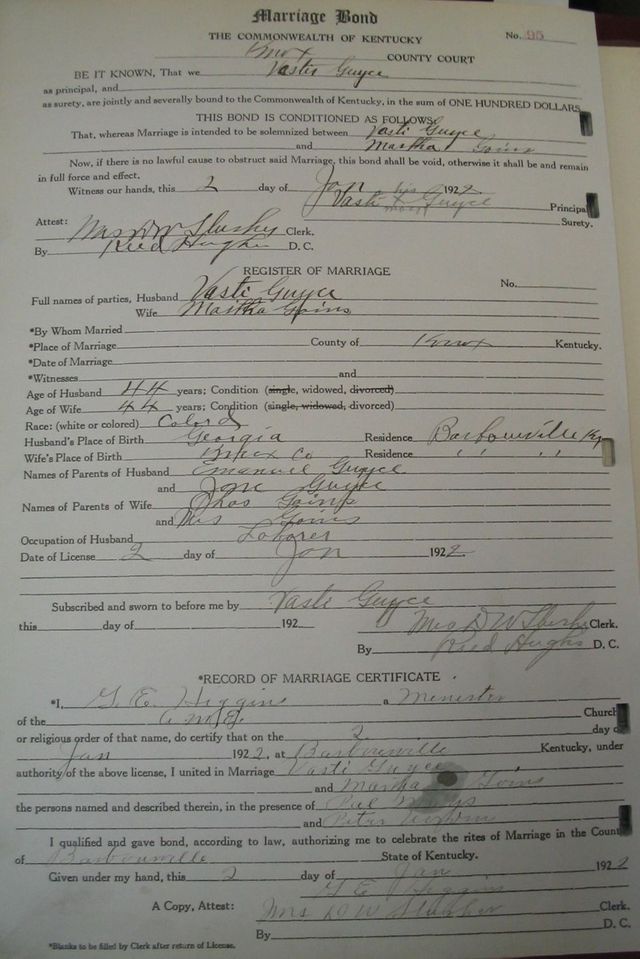 Marriage Bond
THE COMMONWEALTH OF KENTUCKY
No. 95
Knox COUNTY COURT
BE IT KNOWN, That we Vasti Guyce
as principal, and
as surety, are jointly and severally bound to the Commonwealth of Kentucky, in the sum of ONE HUNDRED DOLLARS
THIS BOND IS CONDITIONED AS FOLLOWS
That, whereas Marriage is intended to be solemnized between Vasti Guyce
and Martha Goins
Now, if there is no lawful cause to obstruct said Marriage, this bond shall be void, otherwise it shall be and remain
in full force and effect.
Witness our hands, this 2 day of Jan 1922
his
Vasti X Guyce Principa
mark
Surety.
Attest:
Mrs D W Clerk.
By Reed Hughes D. C.
REGISTER OF MARRIAGE
No.
Full names of parties, Husband Vasti Guyce
Wife Martha Goins
*By Whom Married
*Place of Marriage County of Knox Kentucky.
*Date of Marriage
*Witnesses and
Age of Husband 44 years; Condition (single, widowed, divorced)
Age of Wife 44 years; Condition (single, widowed, divorced)
Race: (white or colored) Colord
Husband's Place of Birth Georgia Residence Barbourville Ky
Wife's Place of Birth Knox Co Residence " "
Names of Parents of Husband Emanuel Guyce
and Jane Guyce
Names of Parents of Wife Goins
and Mrs Goins
Occupation of Husband Laborer
Date of License 2 day of Jan 1922.
Subscribed and sworn to before me by Vasti Guyce
this day of 192
Mrs D W Clerk.
By Reed Hughs D. C.
*RECORD OF MARRIAGE CERTIFICATE
*I, G. E. Higgins a Menester
of the A.M.E. Church
or religious order of that name, do certify that on the 2 day o
Jan 1922, at Barbourville Kentucky, under
authority of the above license, I united in Marriage Vasti Guyce
and Martha Goins
the persons named and described therein, in the presence of
and Peter
I qualified and gave bond, according to law, authorizing me to celebrate the rites of Marriage in the Count
of Barbourville State of Kentucky.
Given under my hand, this 2 day of Jan 1922
G E Higgins
A Copy, Attest: Mrs D W Clerk.
By D. C.
*Blanks to be filled by Clerk after return of License.